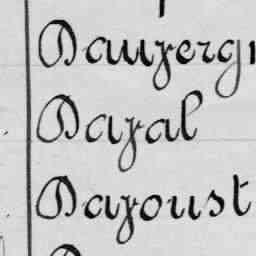 Dauvergn
Daval
Davoust